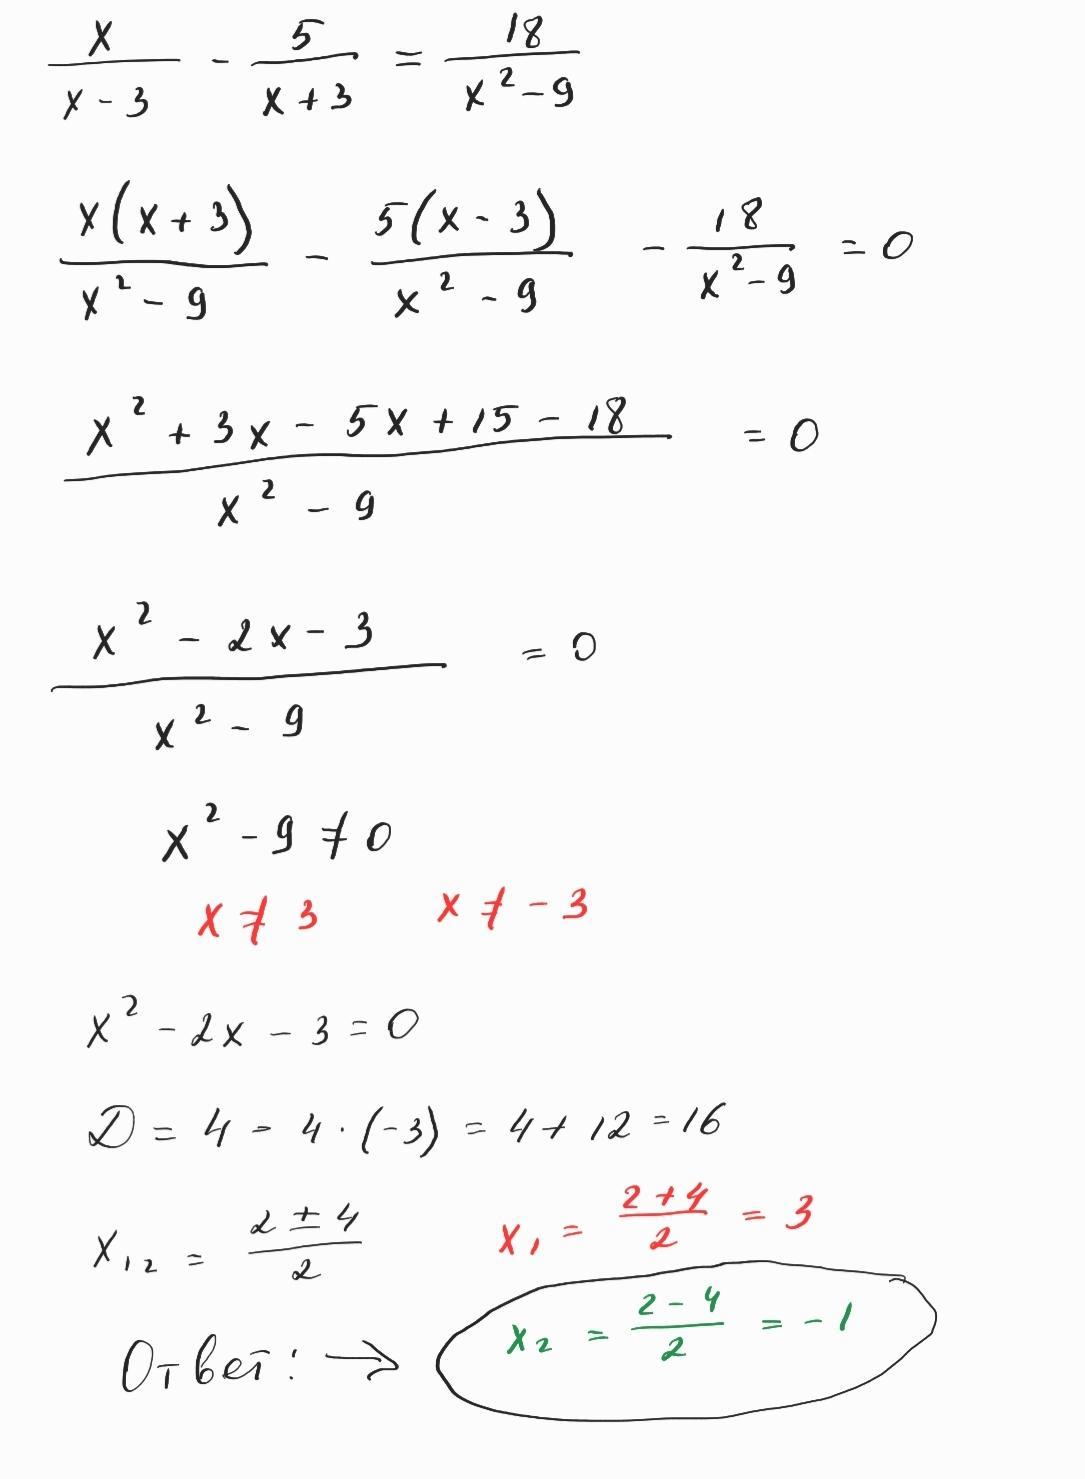 x/(x - 3) - 5/(x + 3) = 18/(x² - 9)
x(x + 3)/(x² - 9) - 5(x - 3)/(x² - 9) - 18/(x² - 9) = 0
(x² + 3x - 5x + 15 - 18)/(x² - 9) = 0
(x² - 2x - 3)/(x² - 9) = 0
x² - 9 ≠ 0
x ≠ 3 x ≠ - 3
x² - 2x - 3 = 0
D = 4 - 4 · (-3) = 4 + 12 = 16
x₁₂ = (2 ± 4)/2 x₁ = (2 + 4)/2 = 3
Ответ: → x₂ = (2 - 4)/2 = -1